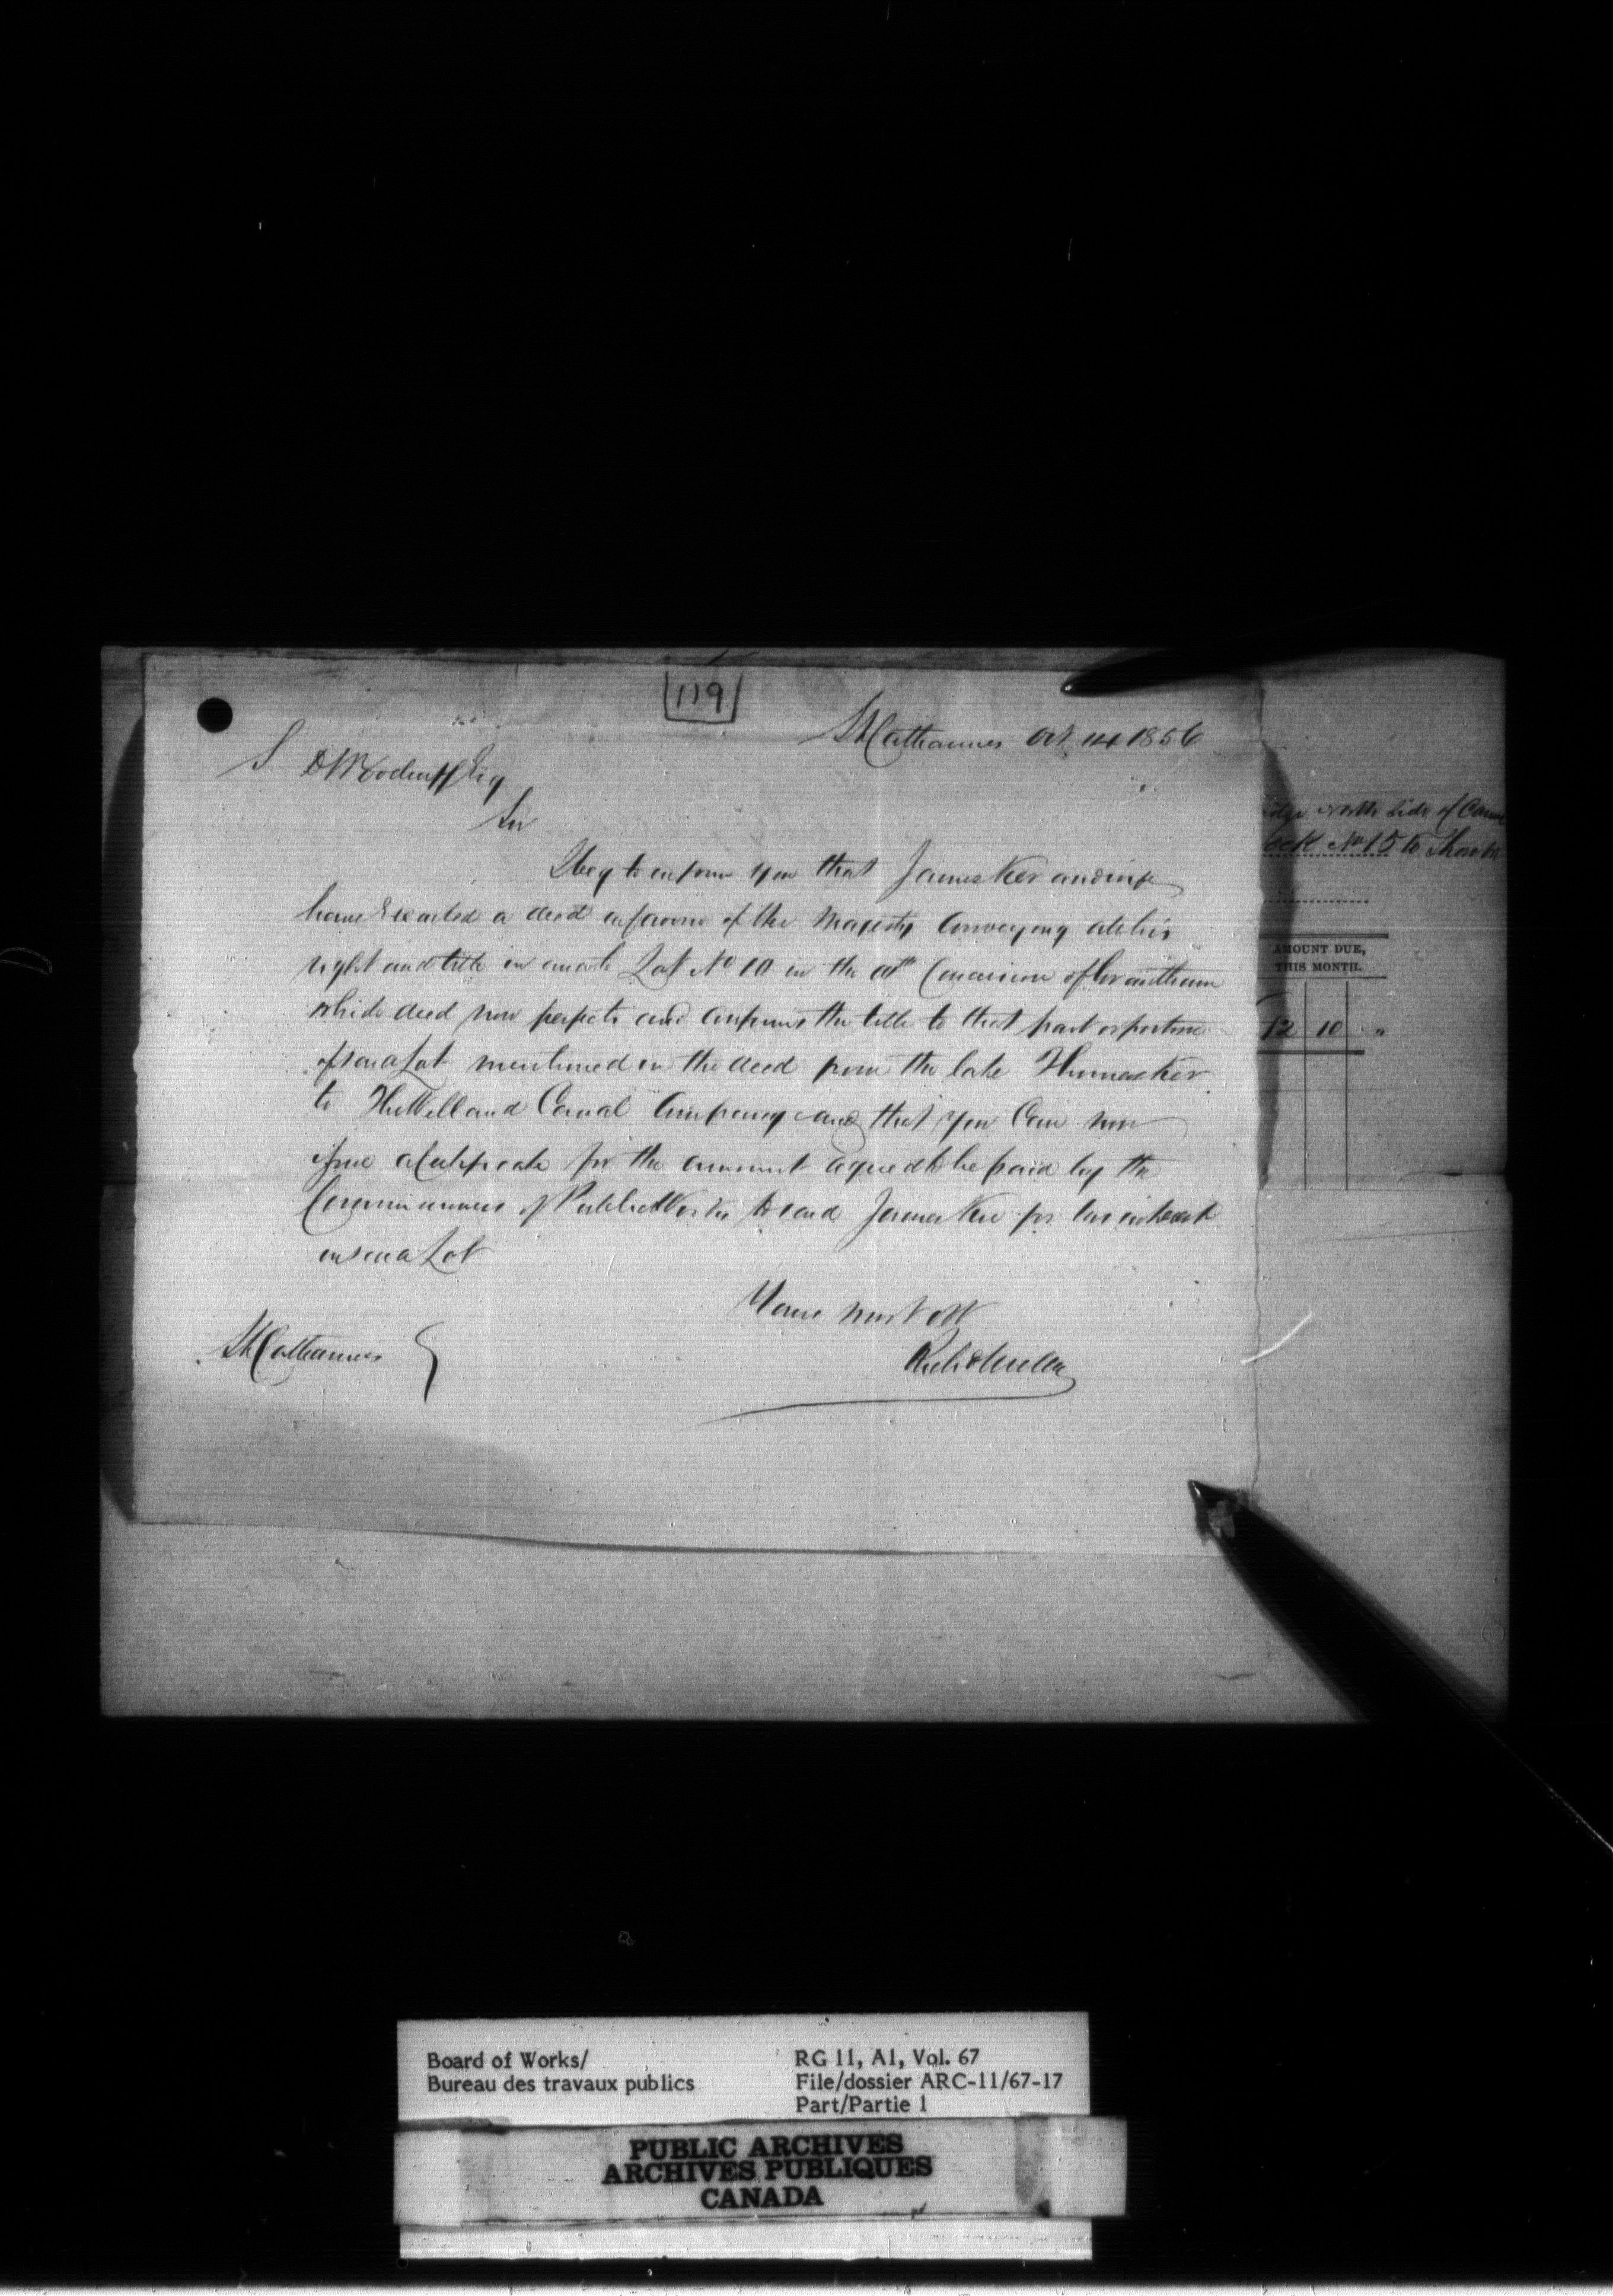 119
St Catharines Oct 14 1856
S. D Woodruff Esq
Sir
I beg to inform you that James Ker and wife
have Executed a deed in favour of Her Majesty Conveying all his
right and title in and to Lot No 10 in the Concession of Grantham
which deed now perfects and confirms the title to that part or portion
of said Lot mentioned in the deed from the late Ker
to The Welland Canal Company and that you Can now
issue a Certificate for the amount agreed to be paid by the
Commissioners of Public Works to said James Ker for his interest
in said Lot
Yours most Obt
St Catharines
North Side of Canal
No 15 to
AMOUNT DUE,
THIS MONTH.
12 10 "
Board of Works/
Bureau des travaux publics
RG 11, A1, Vol. 67
File/dossier ARC-11/67-17
Part/Partie 1
PUBLIC ARCHIVES
ARCHIVES PUBLIQUES
CANADA